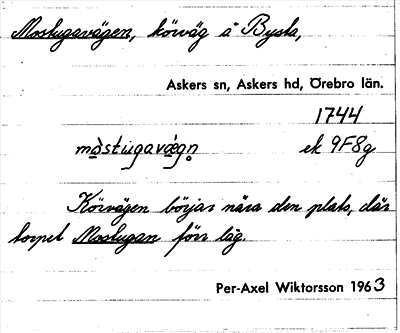 Mostugavägen, körväg å Bysta,
Askers sn, Askers hd, Örebro län.
1744
màstugavæ̀gn̥ ek 9F8g
Körvägen börjar nära den plats, där
torpet Mostugan förr låg.
Per-Axel Wiktorsson 1963